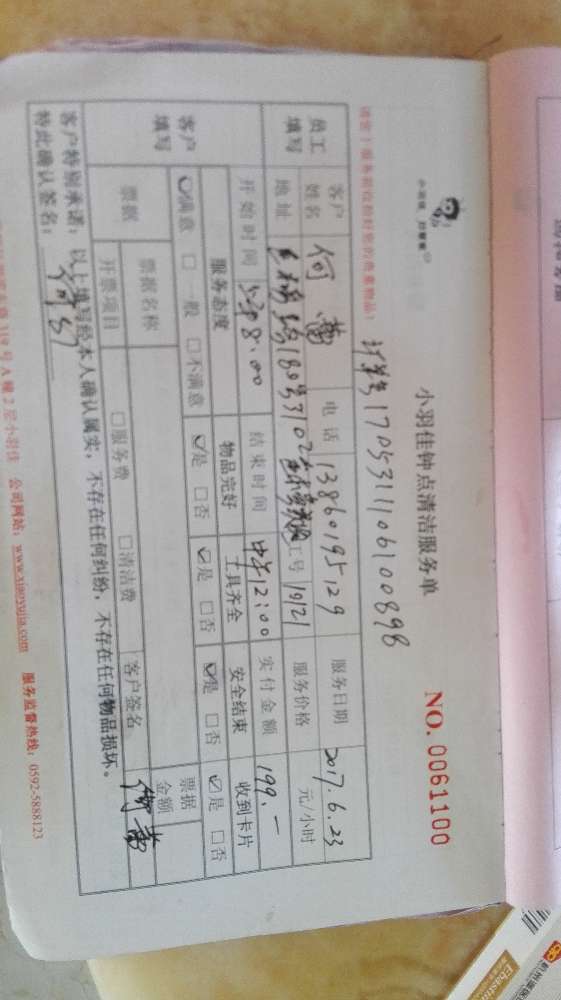 小羽佳钟点清洁服务单
小羽佳 好管家
NO. 0061100
计算号1705311106100898
请您于服务前收拾好您的贵重物品!
员工填写 客户姓名 何蕾 电话 13860195129 服务日期 2017.6.23
地址 工号 10121 服务价格 元/小时
开始时间 8:00 结束时间 中午12:00 实付金额 199.一
客户填写 服务态度 物品完好 工具齐全 安全结束 收到卡片
☑满意 □一般 □不满意 ☑是 □否 ☑是 □否 ☑是 □否 ☑是 □否
票据 票据名称 票据金额
开票项目 □服务费 □清洁费 客户签名 何蕾
客户特别承诺:以上填写经本人确认属实,不存在任何纠纷,不存在任何物品损坏。
特此确认签名:
319号A幢2层小羽佳 公司网站:www.xiaoyujia.com 服务监督热线:0592-5888123